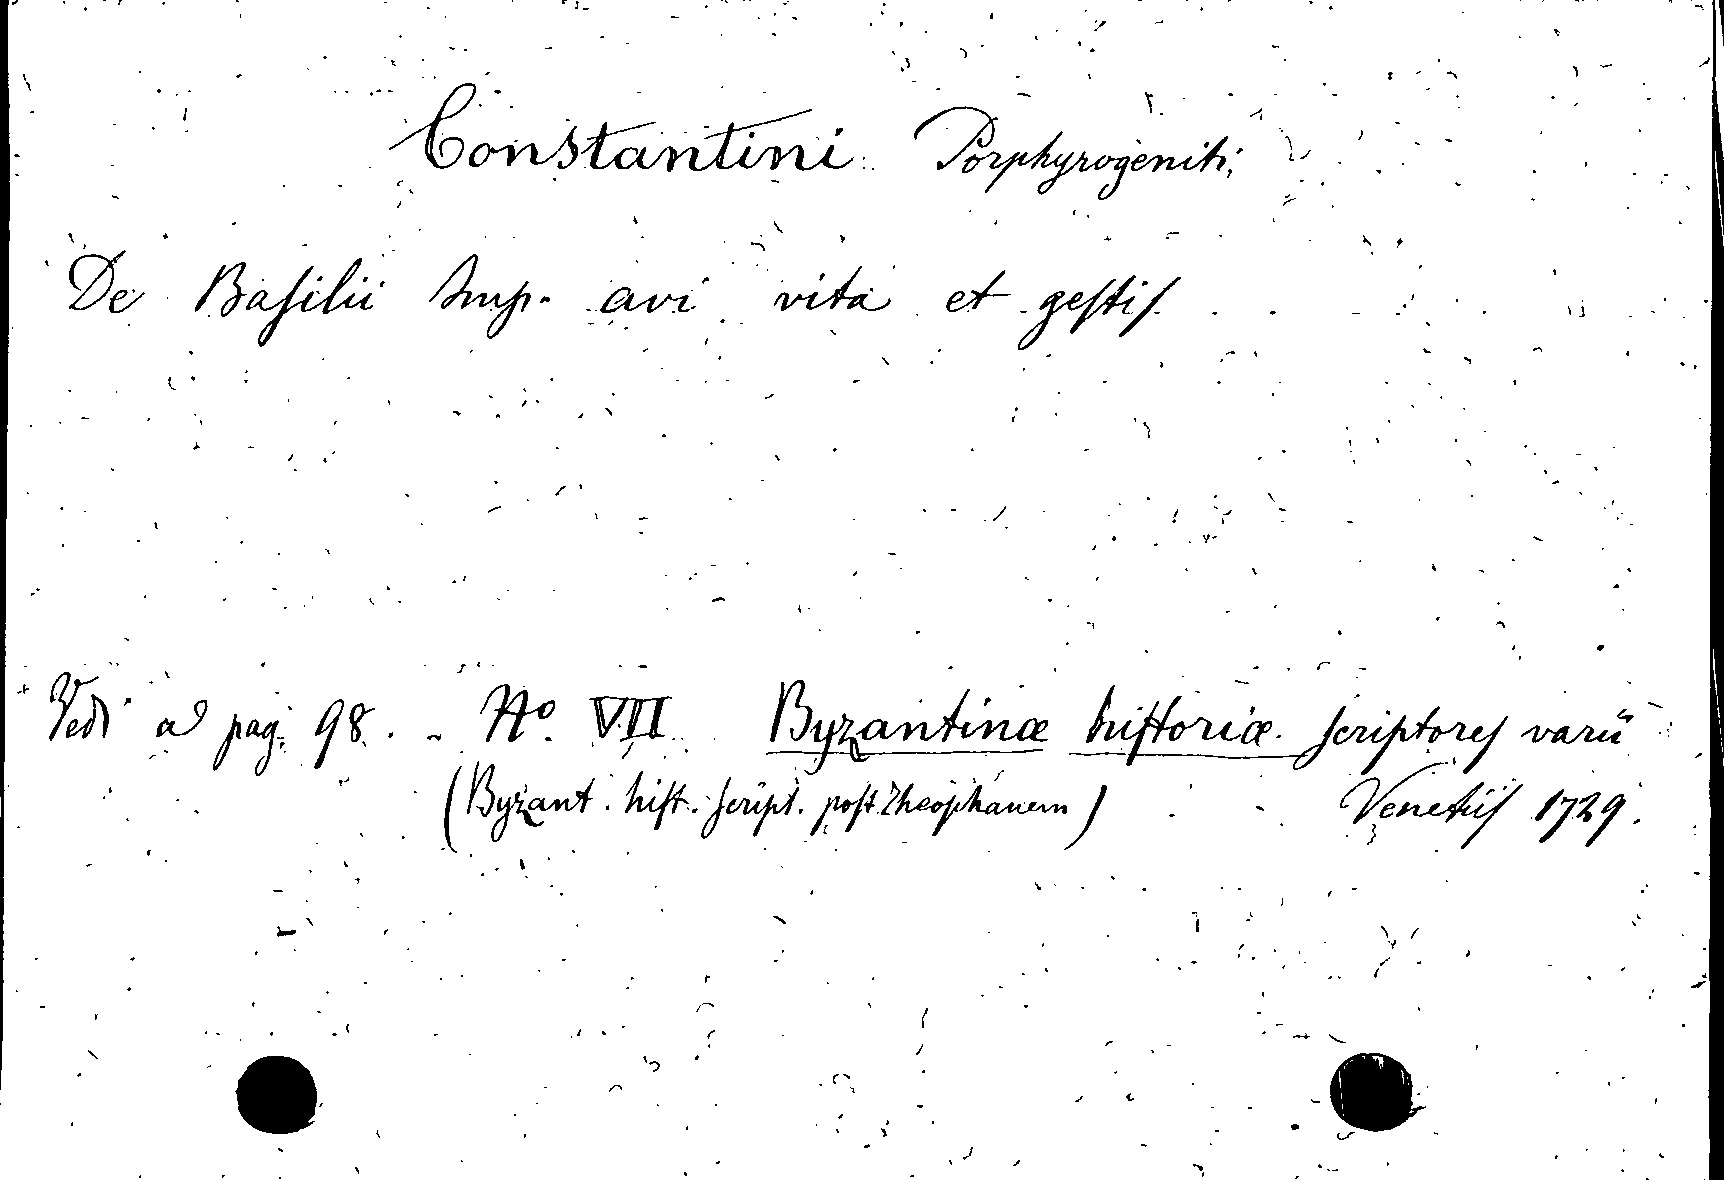 Constantini Porphyrogeniti,
De Baſilii Imp. avi vita et geſtiſ
Vedi a pag. 98. - No. VII Byzantinæ hiſtoriæ ſcriptoreſ varii
(Byzant. hiſt. ſcript. poſt Theophanem) Venetiiſ 1729.